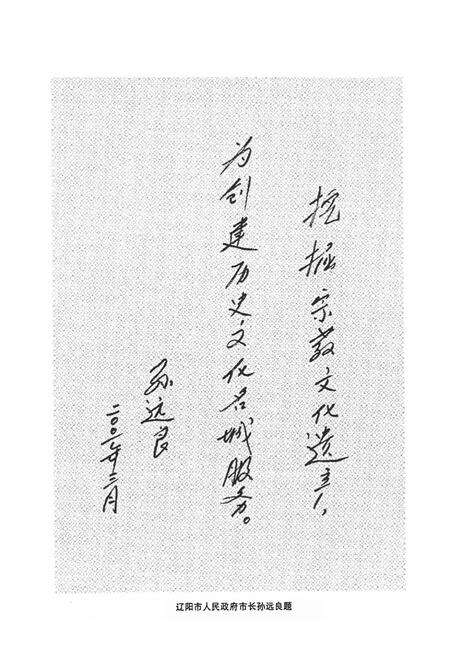 挖掘宗教文化遗产，
为创建历史文化名城服务。
孙远良
二〇〇二年三月
辽阳市人民政府市长孙远良题